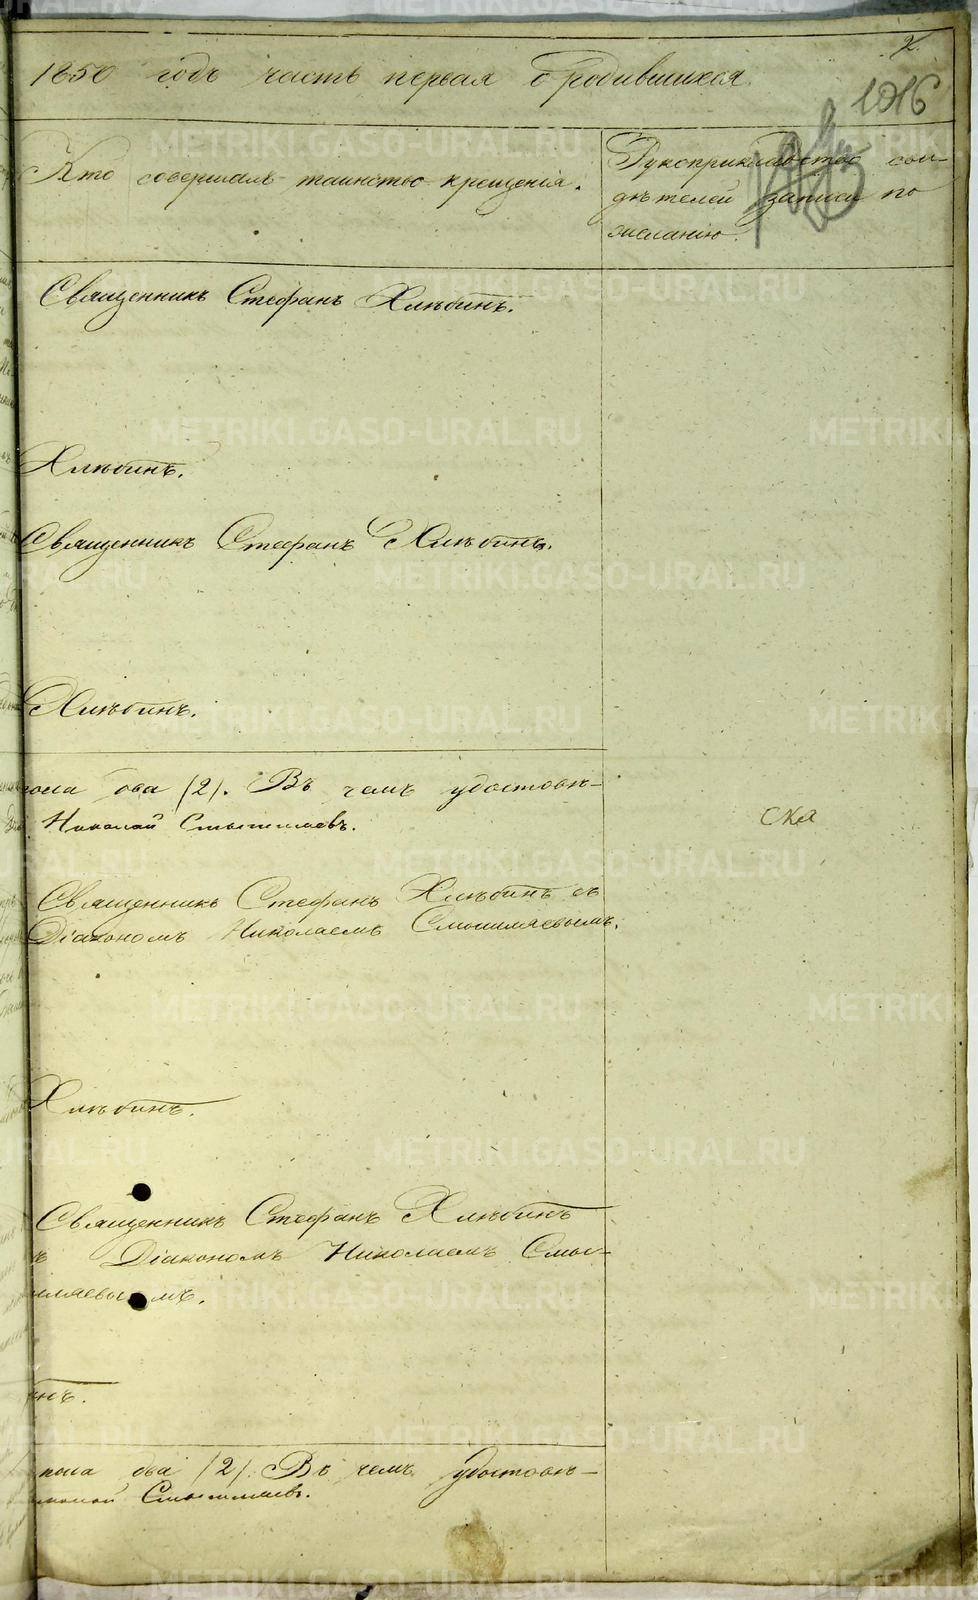 2.
1850 годъ часть первая о родившихся.
1016
Кто совершалъ таинство крещенія.
Рукоприкладство сви-
дѣтелей записи по
желанію.
Священникъ Стефанъ Хлѣбинъ.
Хлѣбинъ.
Священникъ Стефанъ Хлѣбинъ.
Хлѣбинъ.
пола два /2/. Въ чемъ удостовѣ-
Николай Смышляевъ.
ска
Священникъ Стефанъ Хлѣбинъ съ
Діакономъ Николаемъ Смышляевымъ.
Хлѣбинъ.
Священникъ Стефанъ Хлѣбинъ
ъ Діакономъ Николаемъ Смы-
шляевымъ.
инъ.
пола два /2/. Въ чемъ удостовѣ-
Смышляевъ.
METRIKI.GASO-URAL.RU